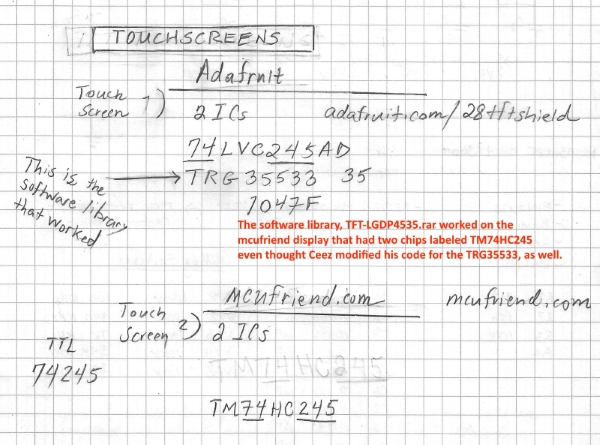 TOUCHSCREENS
Adafruit
Touch Screen 1)
2 ICs
adafruit.com/28tftshield
74LVC245AD
This is the software library that worked
TRG35533 35
1047F
The software library, TFT-LGDP4535.rar worked on the
mcufriend display that had two chips labeled TM74HC245
even thought Ceez modified his code for the TRG35533, as well.
mcufriend.com
mcufriend.com
Touch Screen 2)
2 ICs
TTL
74245
TM74HC245
TM74HC245